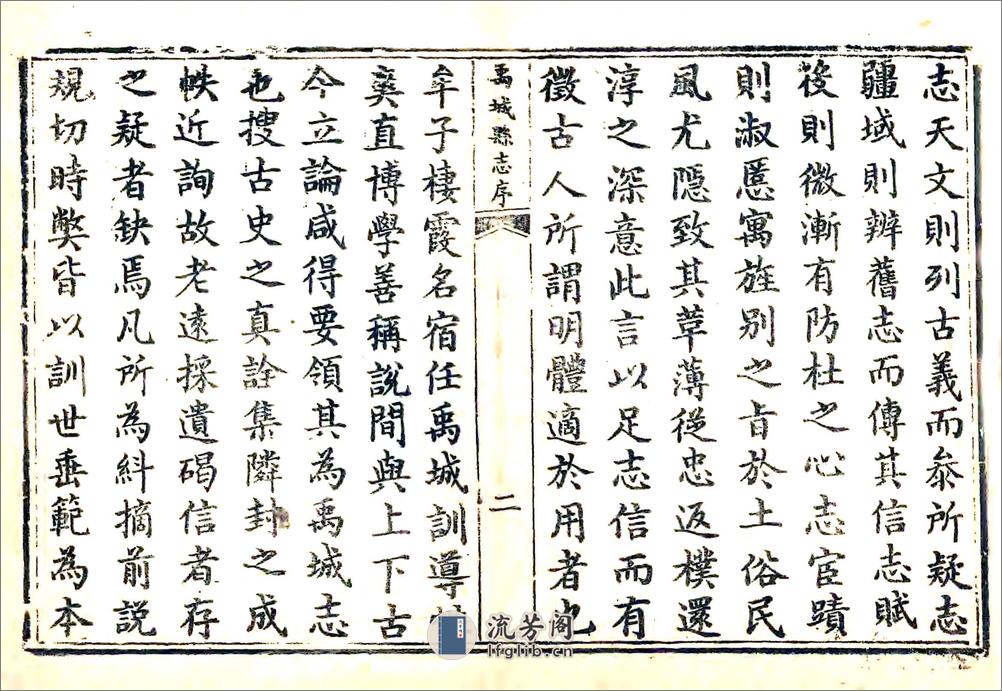 志天文則列古義而叅所疑志
疆域則辨舊志而傳其信志賦
役則微漸有防杜之心志宦蹟
則淑慝寓旌别之旨於土俗民
風尤隠致其革薄從忠返樸還
淳之深意此言以足志信而有
徵古人所謂明體適於用者也
禹城縣志序
二
牟子棲霞名宿任禹城訓導
奭直博學善稱説間與上下古
今立論咸得要領其為禹城志
也搜古史之真詮集隣封之成
帙近詢故老遠採遺碣信者存
之疑者缺焉凡所為糾摘前説
規切時弊皆以訓世垂範為本
流芳阁
lfglib.cn